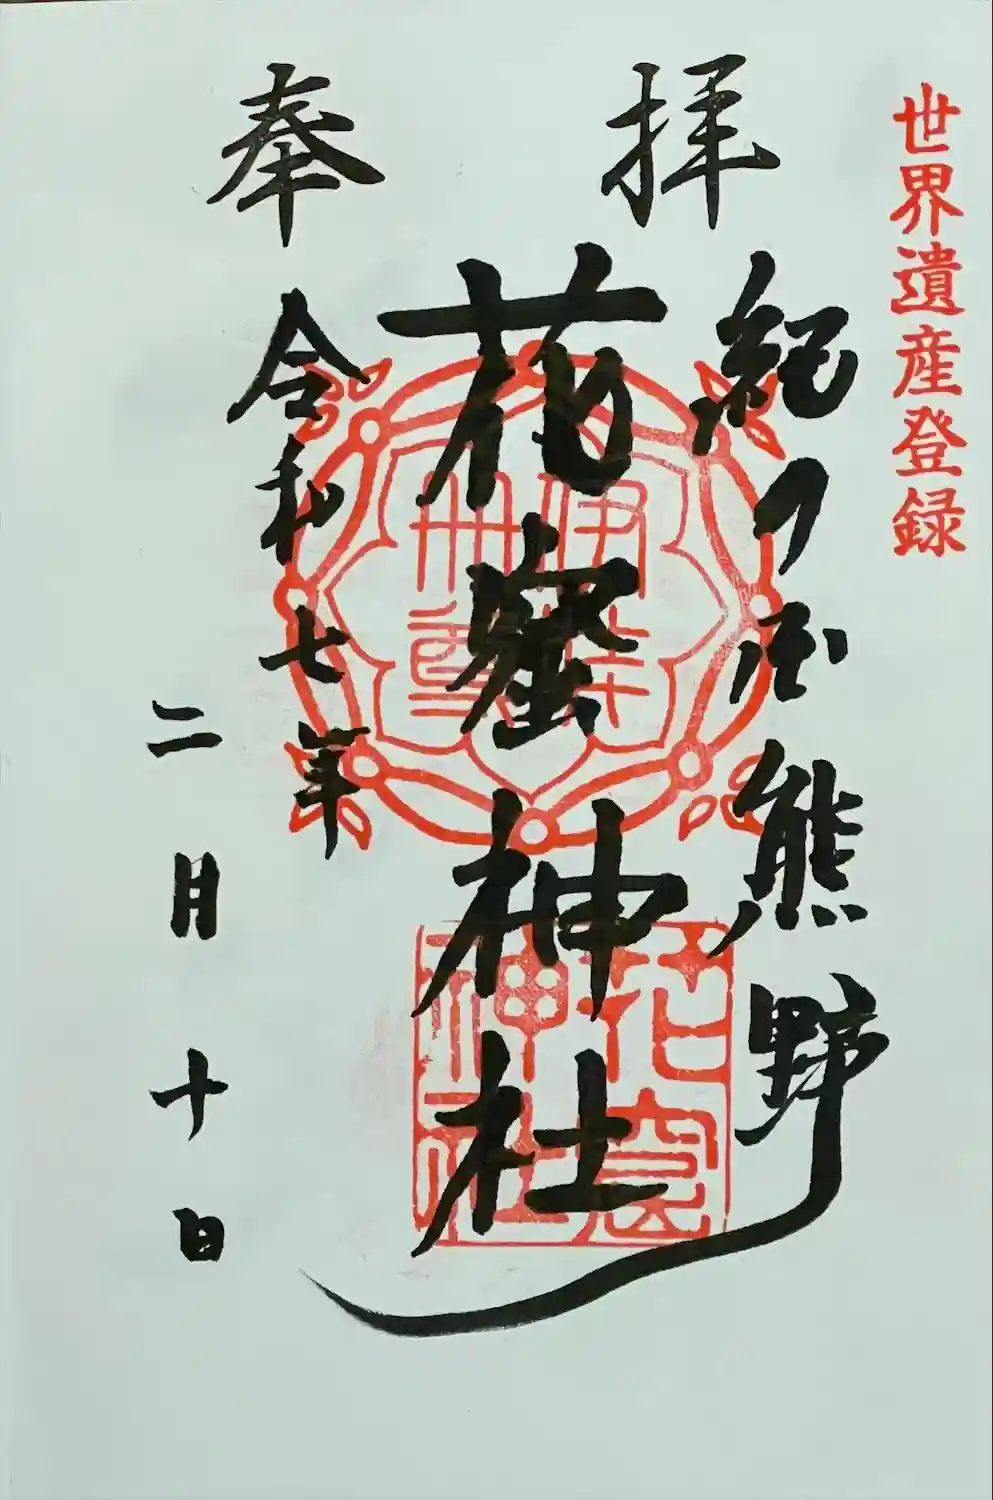 世界遺産登録
奉拝
紀乃国熊野
花窟神社
令和七年
二月十日
伊弉冊尊
花窟神社